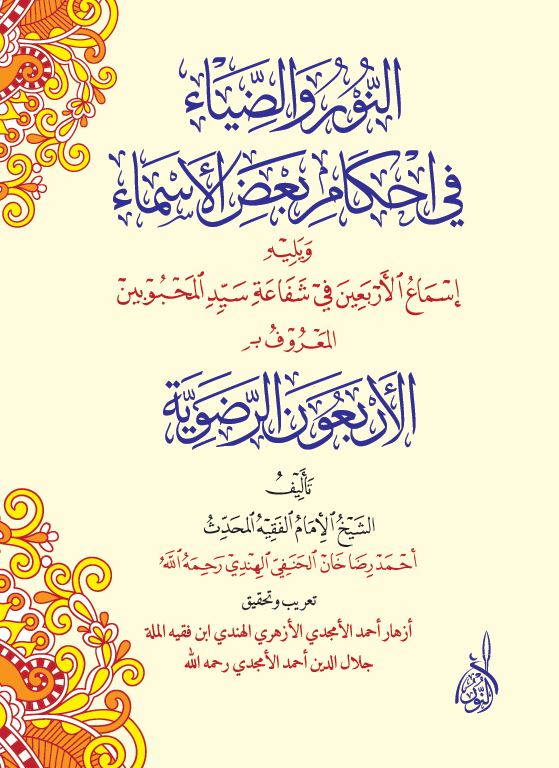 النُّوْرُ وَالضِّيَاءُ
فِي أَحْكَامِ بَعْضِ الْأَسْمَاءِ
وَيَلِيْهِ
إِسْمَاعُ الْأَرْبَعِيْنَ فِيْ شَفَاعَةِ سَيِّدِ الْمَحْبُوْبِيْنَ
الْمَعْرُوْفُ بِـ
الْأَرْبَعُوْنَ الرَّضَوِيَّة
تَأْلِيْفُ
الشَّيْخُ الْإِمَامُ الْفَقِيْهُ الْمُحَدِّثُ
أَحْمَدْ رِضَا خَانْ الْحَنَفِيّ الْهِنْدِيْ رَحِمَهُ اللّٰهُ
تعريب وتحقيق
أزهار أحمد الأمجدي الأزهري الهندي ابن فقيه الملة
جلال الدين أحمد الأمجدي رحمه الله
النُّوْر